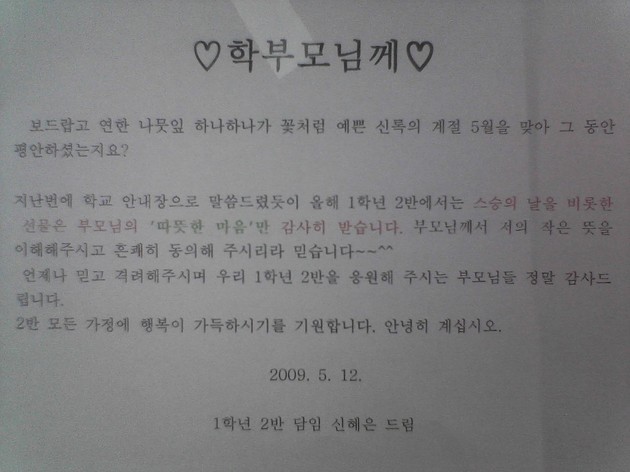 ♡학부모님께♡
보드랍고 연한 나뭇잎 하나하나가 꽃처럼 예쁜 신록의 계절 5월을 맞아 그 동안
평안하셨는지요?
지난번에 학교 안내장으로 말씀드렸듯이 올해 1학년 2반에서는 스승의 날을 비롯한
선물은 부모님의 '따뜻한 마음'만 감사히 받습니다. 부모님께서 저의 작은 뜻을
이해해주시고 흔쾌히 동의해 주시리라 믿습니다~~^^
언제나 믿고 격려해주시며 우리 1학년 2반을 응원해 주시는 부모님들 정말 감사드
립니다.
2반 모든 가정에 행복이 가득하시기를 기원합니다. 안녕히 계십시오.
2009. 5. 12.
1학년 2반 담임 신혜은 드림